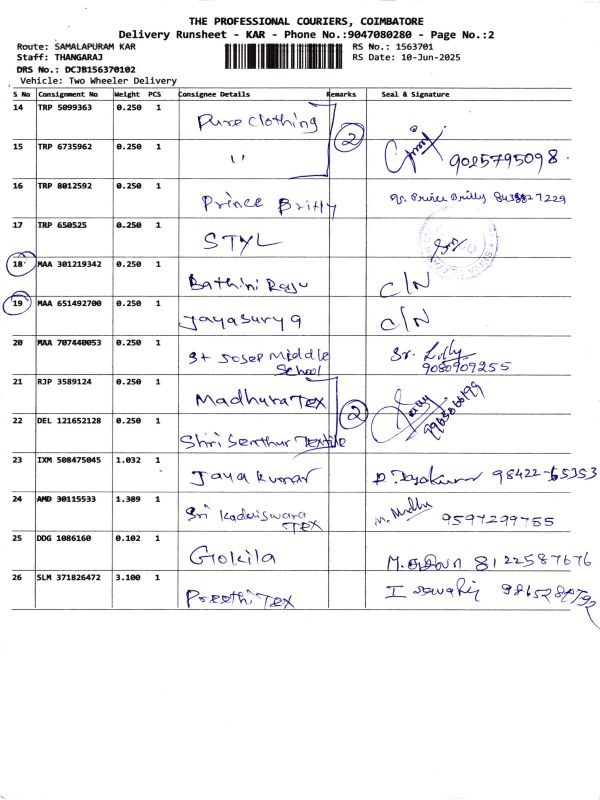 THE PROFESSIONAL COURIERS, COIMBATORE
Delivery Runsheet - KAR - Phone No.:9047080280 - Page No.:2
Route: SAMALAPURAM KAR RS No.: 1563701
Staff: THANGARAJ RS Date: 10-Jun-2025
DRS No.: DCJB156370102
Vehicle: Two Wheeler Delivery
S No Consignment No Weight PCS Consignee Details Remarks Seal & Signature
14 TRP 5099363 0.250 1 Pure Clothing 2
15 TRP 6735962 0.250 1 " 9025795098
16 TRP 8012592 0.250 1 Prince Britty
17 TRP 650525 0.250 1 STYL
18 MAA 301219342 0.250 1 Bathini Raju C/N
19 MAA 651492700 0.250 1 Jayasurya C/N
20 MAA 707440053 0.250 1 St Josep Middle School Sr. Lilly
9080909255
21 RJP 3589124 0.250 1 Madhura TEX 2
22 DEL 121652128 0.250 1 Shri Senthur Textile
23 IXM 508475045 1.032 1 Jaya kumar
24 AMD 30115533 1.389 1 Sri Kadeiswara TEX 9597299755
25 DDG 1086160 0.102 1 Gokila 8122587676
26 SLM 371826472 3.100 1 Preethi TEX